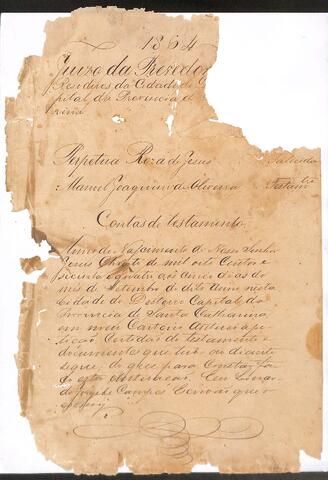 1864
Juizo da Provedor
Residuos da Cidade
pital da Provincia de
rina
Perpetua Roza de Jesus Falecida
Manoel Joaquim d'Oliveira Testam
Contas de testamento
Anno do Nascimento de Nosso Senhor
Jesus Christo de mil oito Centos e
secenta e quatro aos dias do
mes de Setembro do dito Anno nesta
Cidade do Desterro Capital da
Provincia de Santa Catharina
em meu Cartorio a pe
tição Certidão de testamento e
documentos que
segue; do que para Constar fa
ço esta Autuação. Eu
Campos Escrivão que o